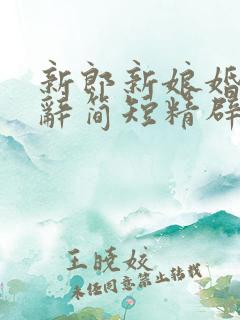 新郎新娘婚
辞简短精辟
王晓姣
未经同意禁止转载